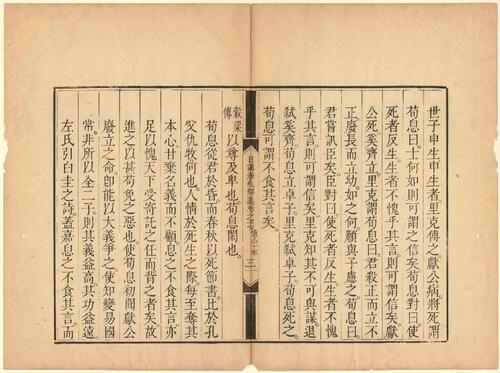 世子申生申生者里克傅之獻公病將死謂
荀息曰士何如則可謂之信矣荀息對曰使
死者反生生者不愧乎其言則可謂信矣獻
公死奚齊立里克謂荀息曰君殺正而立不
正廢長而立幼如之何願與子慮之荀息曰
君嘗訊臣矣臣對曰使死者反生生者不愧
乎其言則可謂信矣里克知其不可與謀退
弒奚齊荀息立卓子里克弒卓子荀息死之
荀息可謂不食其言矣
日講春秋解義卷之
穀梁傳以尊及卑也荀息閑也
荀息從君於昏而春秋以死節書比於孔
父仇牧何也人情於死生之際每至奪其
本心甘棄名義而不顧息之不食其言亦
足以愧天下受寄託之任而背之者矣故
進之以甚苟免之惡也使荀息初聞獻公
廢立之命即能以大義爭之使知變易國
常非所以全二子則其義益高其功益遠
左氏引白圭之詩蓋嘉息之不食其言而